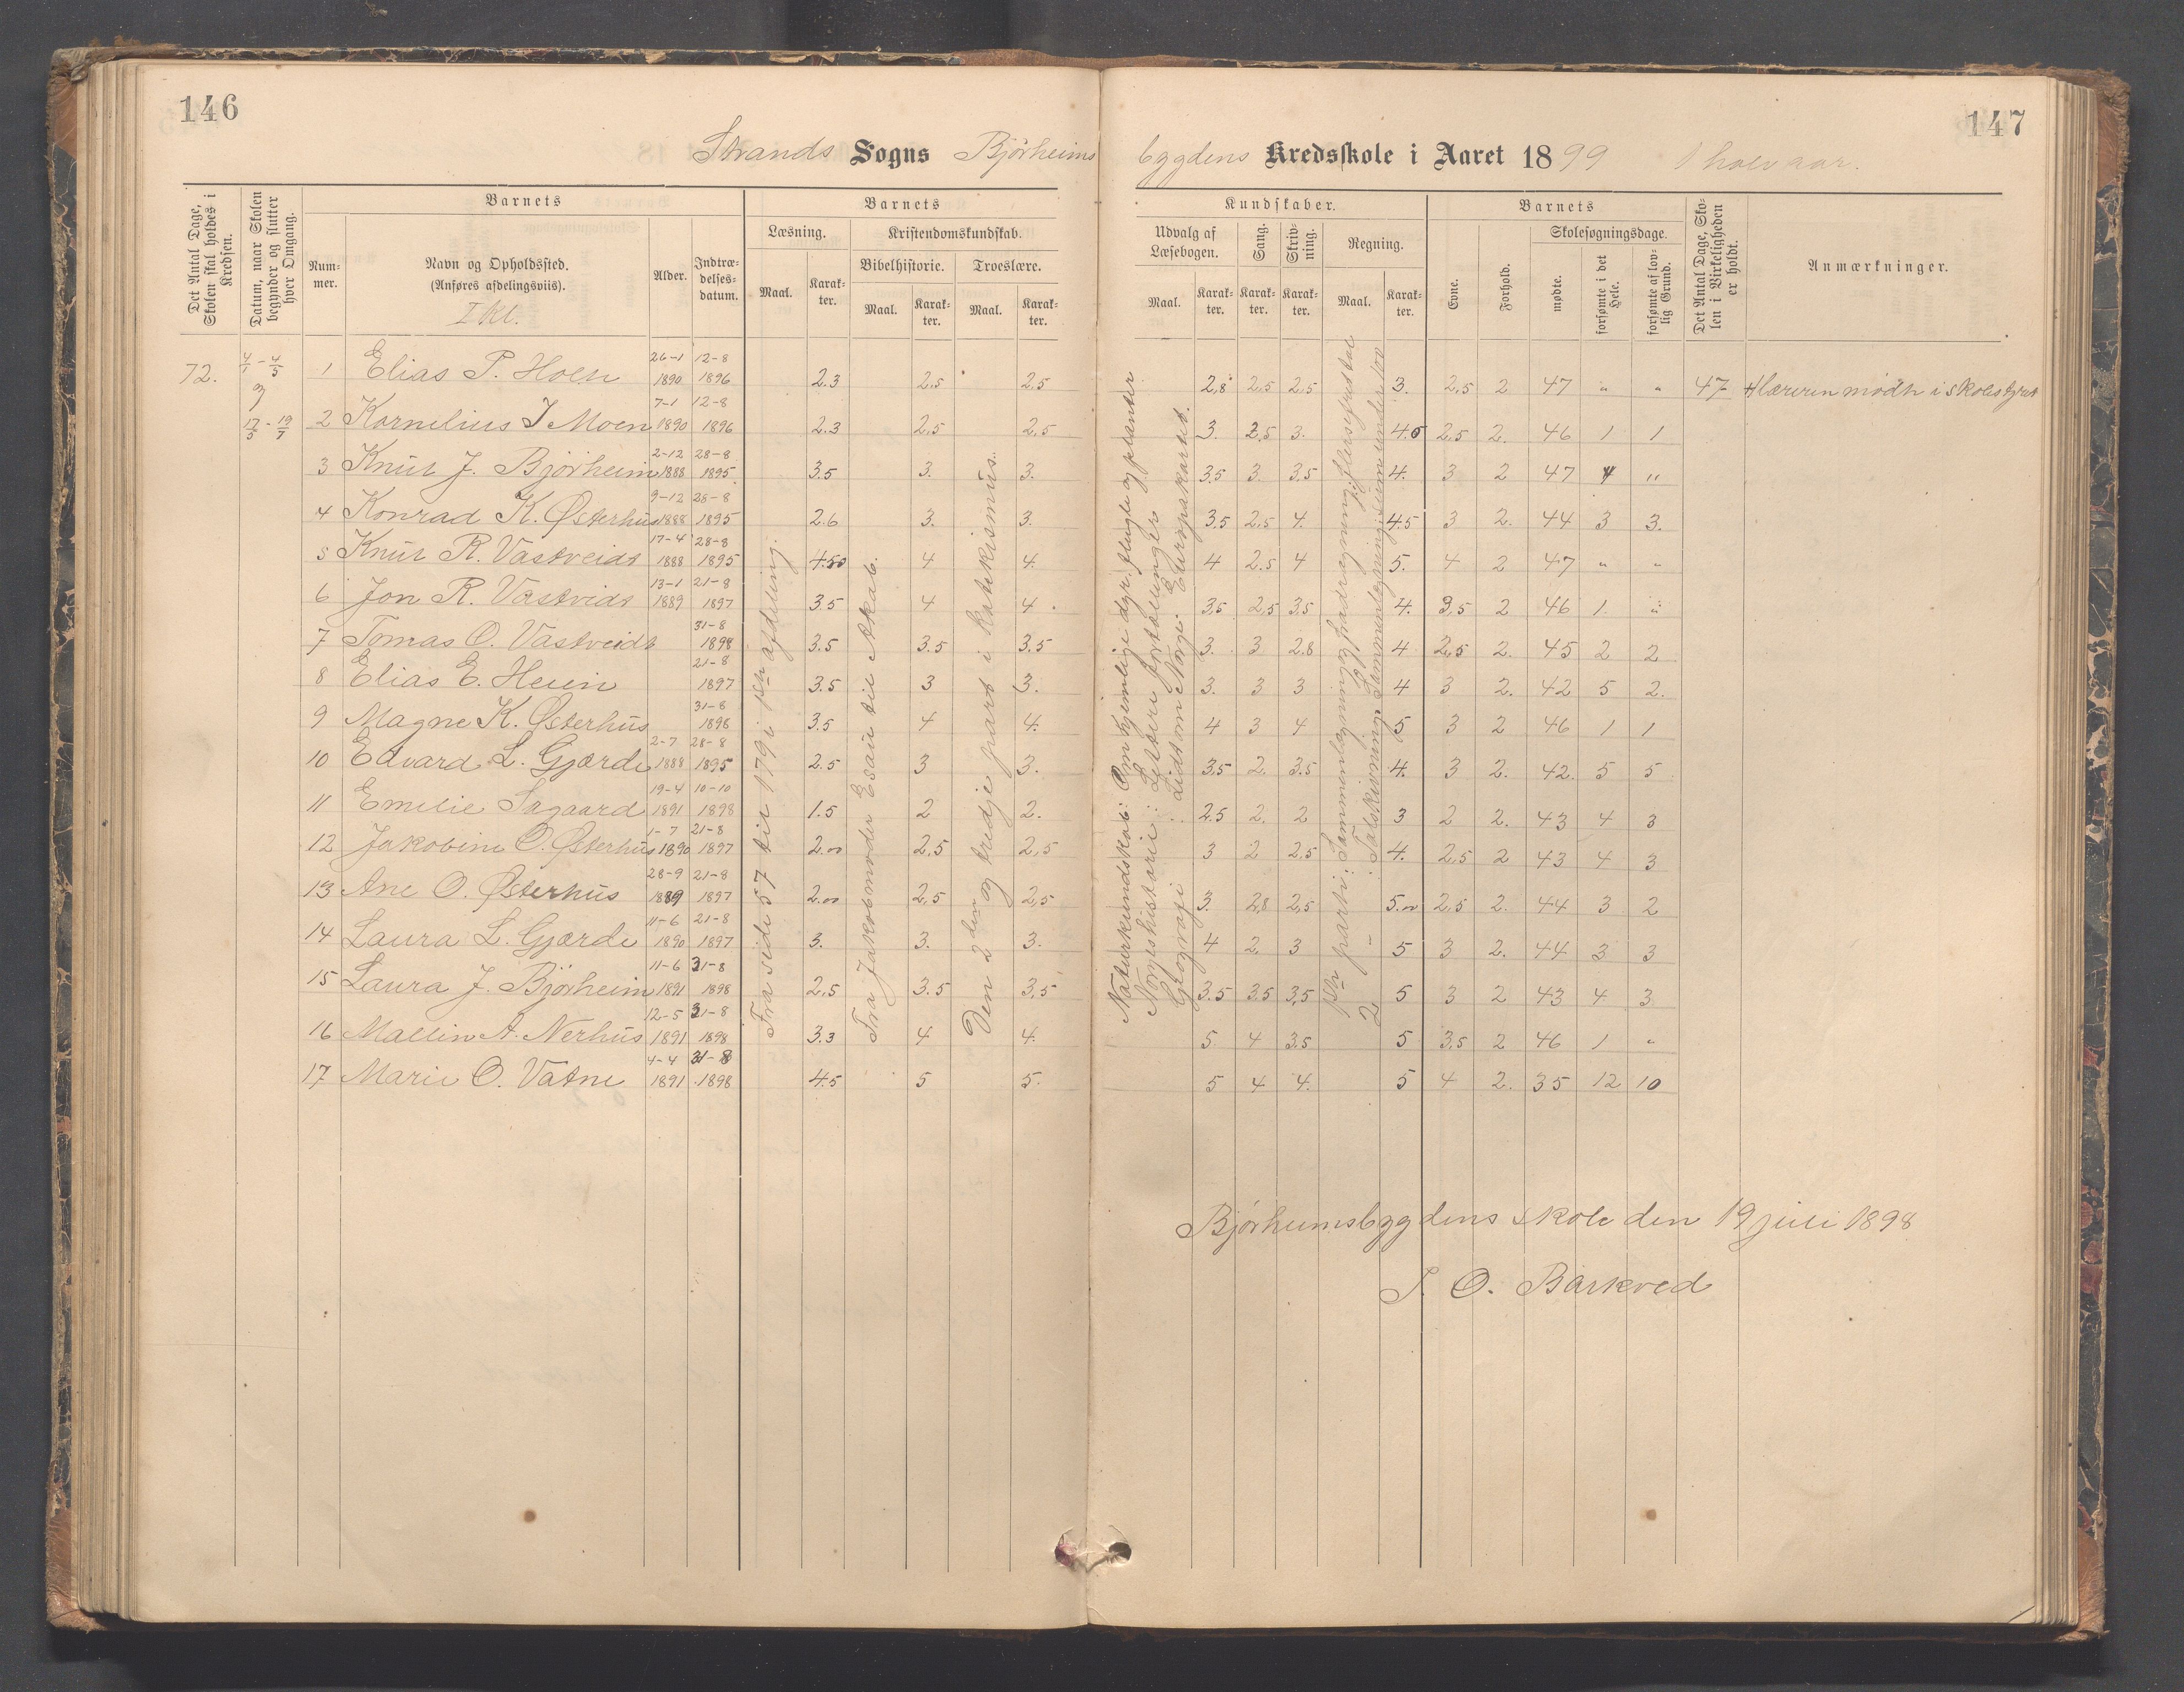 146
147
Strands Sogns Bjørheims
bygdens Kredsskole i Aaret 1899 1 halvaar.
Det Antal Dage, Skolen skal holdes i Kredsen.
Datum, naar Skolen begynder og slutter hver Omgang.
Barnets
Num-mer.
Navn og Opholdssted.
(Anføres afdelingsviis).
I kl.
Alder.
Indtræ-delses-datum.
Barnets
Læsning.
Maal.
Karak-ter.
Kristendomskundskab.
Bibelhistorie.
Maal.
Karak-ter.
Troeslære.
Maal.
Karak-ter.
Kundskaber.
Udvalg af Læsebogen.
Maal.
Karak-ter.
Sang.
Karak-ter.
Skriv-ning.
Karak-ter.
Regning.
Maal.
Karak-ter.
Barnets
Evne.
Forhold.
Skolesøgningsdage.
mødte.
forsømte i det Hele.
forsømte af lov-lig Grund.
Det Antal Dage, Sko-len i Virkeligheden er holdt.
Anmærkninger.
72.
4/1 - 4/5
og
17/5 - 19/7
1 Elias P. Hoen 26-1 1890 12-8 1896 2.3 2.5 2,5 2,8 2,5 2.5 3. 2,5 2 47 " " 47 Læreren mødte i skolestyret
2 Kornelius J Moen 7-1 1890 12-8 1896 2.3 2,5 2,5 3. 2,5 3. 4.5 2,5 2. 46 1 1
3 Knut J. Bjørheim 2-12 1888 28-8 1895 3.5 3. 3. 3.5 3. 3.5 4. 3 2 47 "
4 Konrad K. Østerhus 9-12 1888 28-8 1895 2.6 3. 3. 3.5 2,5 4. 4.5 3 2. 44 3 3.
5 Knut R. Vastveidt 17-4 1888 28-8 1895 4.50 4 4. 4 2.5 4 5. 4 2 47 " "
6 Jon R. Vastvidt 13-1 1889 21-8 1897 3.5 4 4. 3,5 2,5 3.5 4. 3,5 2 46 1. "
7 Tomas O. Vastveidt 31-8 1898 3.5 3.5 3.5 3. 3 2.8 4 2,5 2. 45 2 2
8 Elias E. Heuin 21-8 1897 3.5 3 3. 3. 3 3 4 3 2. 42 5 2.
9 Magne K. Østerhus 31-8 1898 3.5 4 4. 4 3 4 5 3 2 46 1 1
10 Edvard L. Gjærde 2-7 1888 28-8 1895 2.5 3 3. 3.5 2. 3.5 4. 3 2. 42. 5 5
11 Emelie Sagaard 19-4 1891 10-10 1898 1.5 2 2. 2.5 2. 2 3 2 2. 43 4 3
12 Jakobine O. Østerhus 1-7 1890 21-8 1897 2.00 2,5 2,5 3 2 2.5 4. 2,5 2 43 4 3
13 Ane O. Østerhus 28-9 1889 21-8 1897 2.00 2,5 2,5 3. 2,8 2,5 5.00 2,5 2. 44 3 2
14 Laura L. Gjærde 11-6 1890 21-8 1897 3. 3. 3. 4 2 3 5 3 2. 44 3 3
15 Laura J. Bjørheim 11-6 1891 31-8 1898 2,5 3.5 3,5 3.5 3.5 3,5 5 3 2 43 4 3.
16 Mallin A. Nerhus 12-5 1891 31-8 1898 3.3 4 4. 5. 4 3.5 5 3.5 2 46 1 "
17 Marie O. Vatne 4-4 1891 31-8 1898 4.5 5 5. 5 4 4. 5 4 2. 35 12 10
Fra side 57 til 179 i 1ste afdeling.
Fra Jakob møder Esau til Akab.
Den 2den og tredje part i Katekismus.
Naturkundskab: Om hjemlige dyr, flugte og planter
Norgeshistorie: Lettere fortællinger
Geografi Lidt om Norge. Europakartet.
1ste parti: Sammenlægning og fradragning i flersifret tal
2 " : Talskrivning. Sammenlægning: sum under 100
Bjørheimsbygdens skole den 19 juli 1898
J. O. Barkved